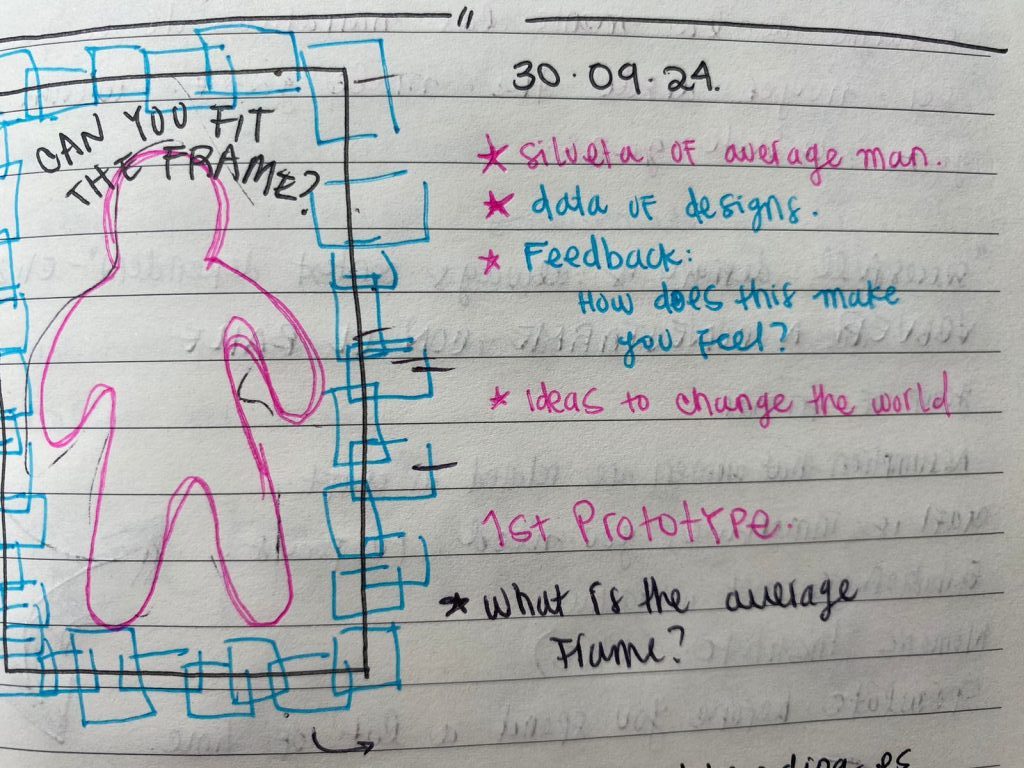 CAN YOU FIT
THE FRAME?
30.09.24.
★ silueta of average man.
★ data of designs.
★ Feedback:
How does this make
you feel?
★ ideas to change the world
1st Prototype.
★ what is the average
Frame?